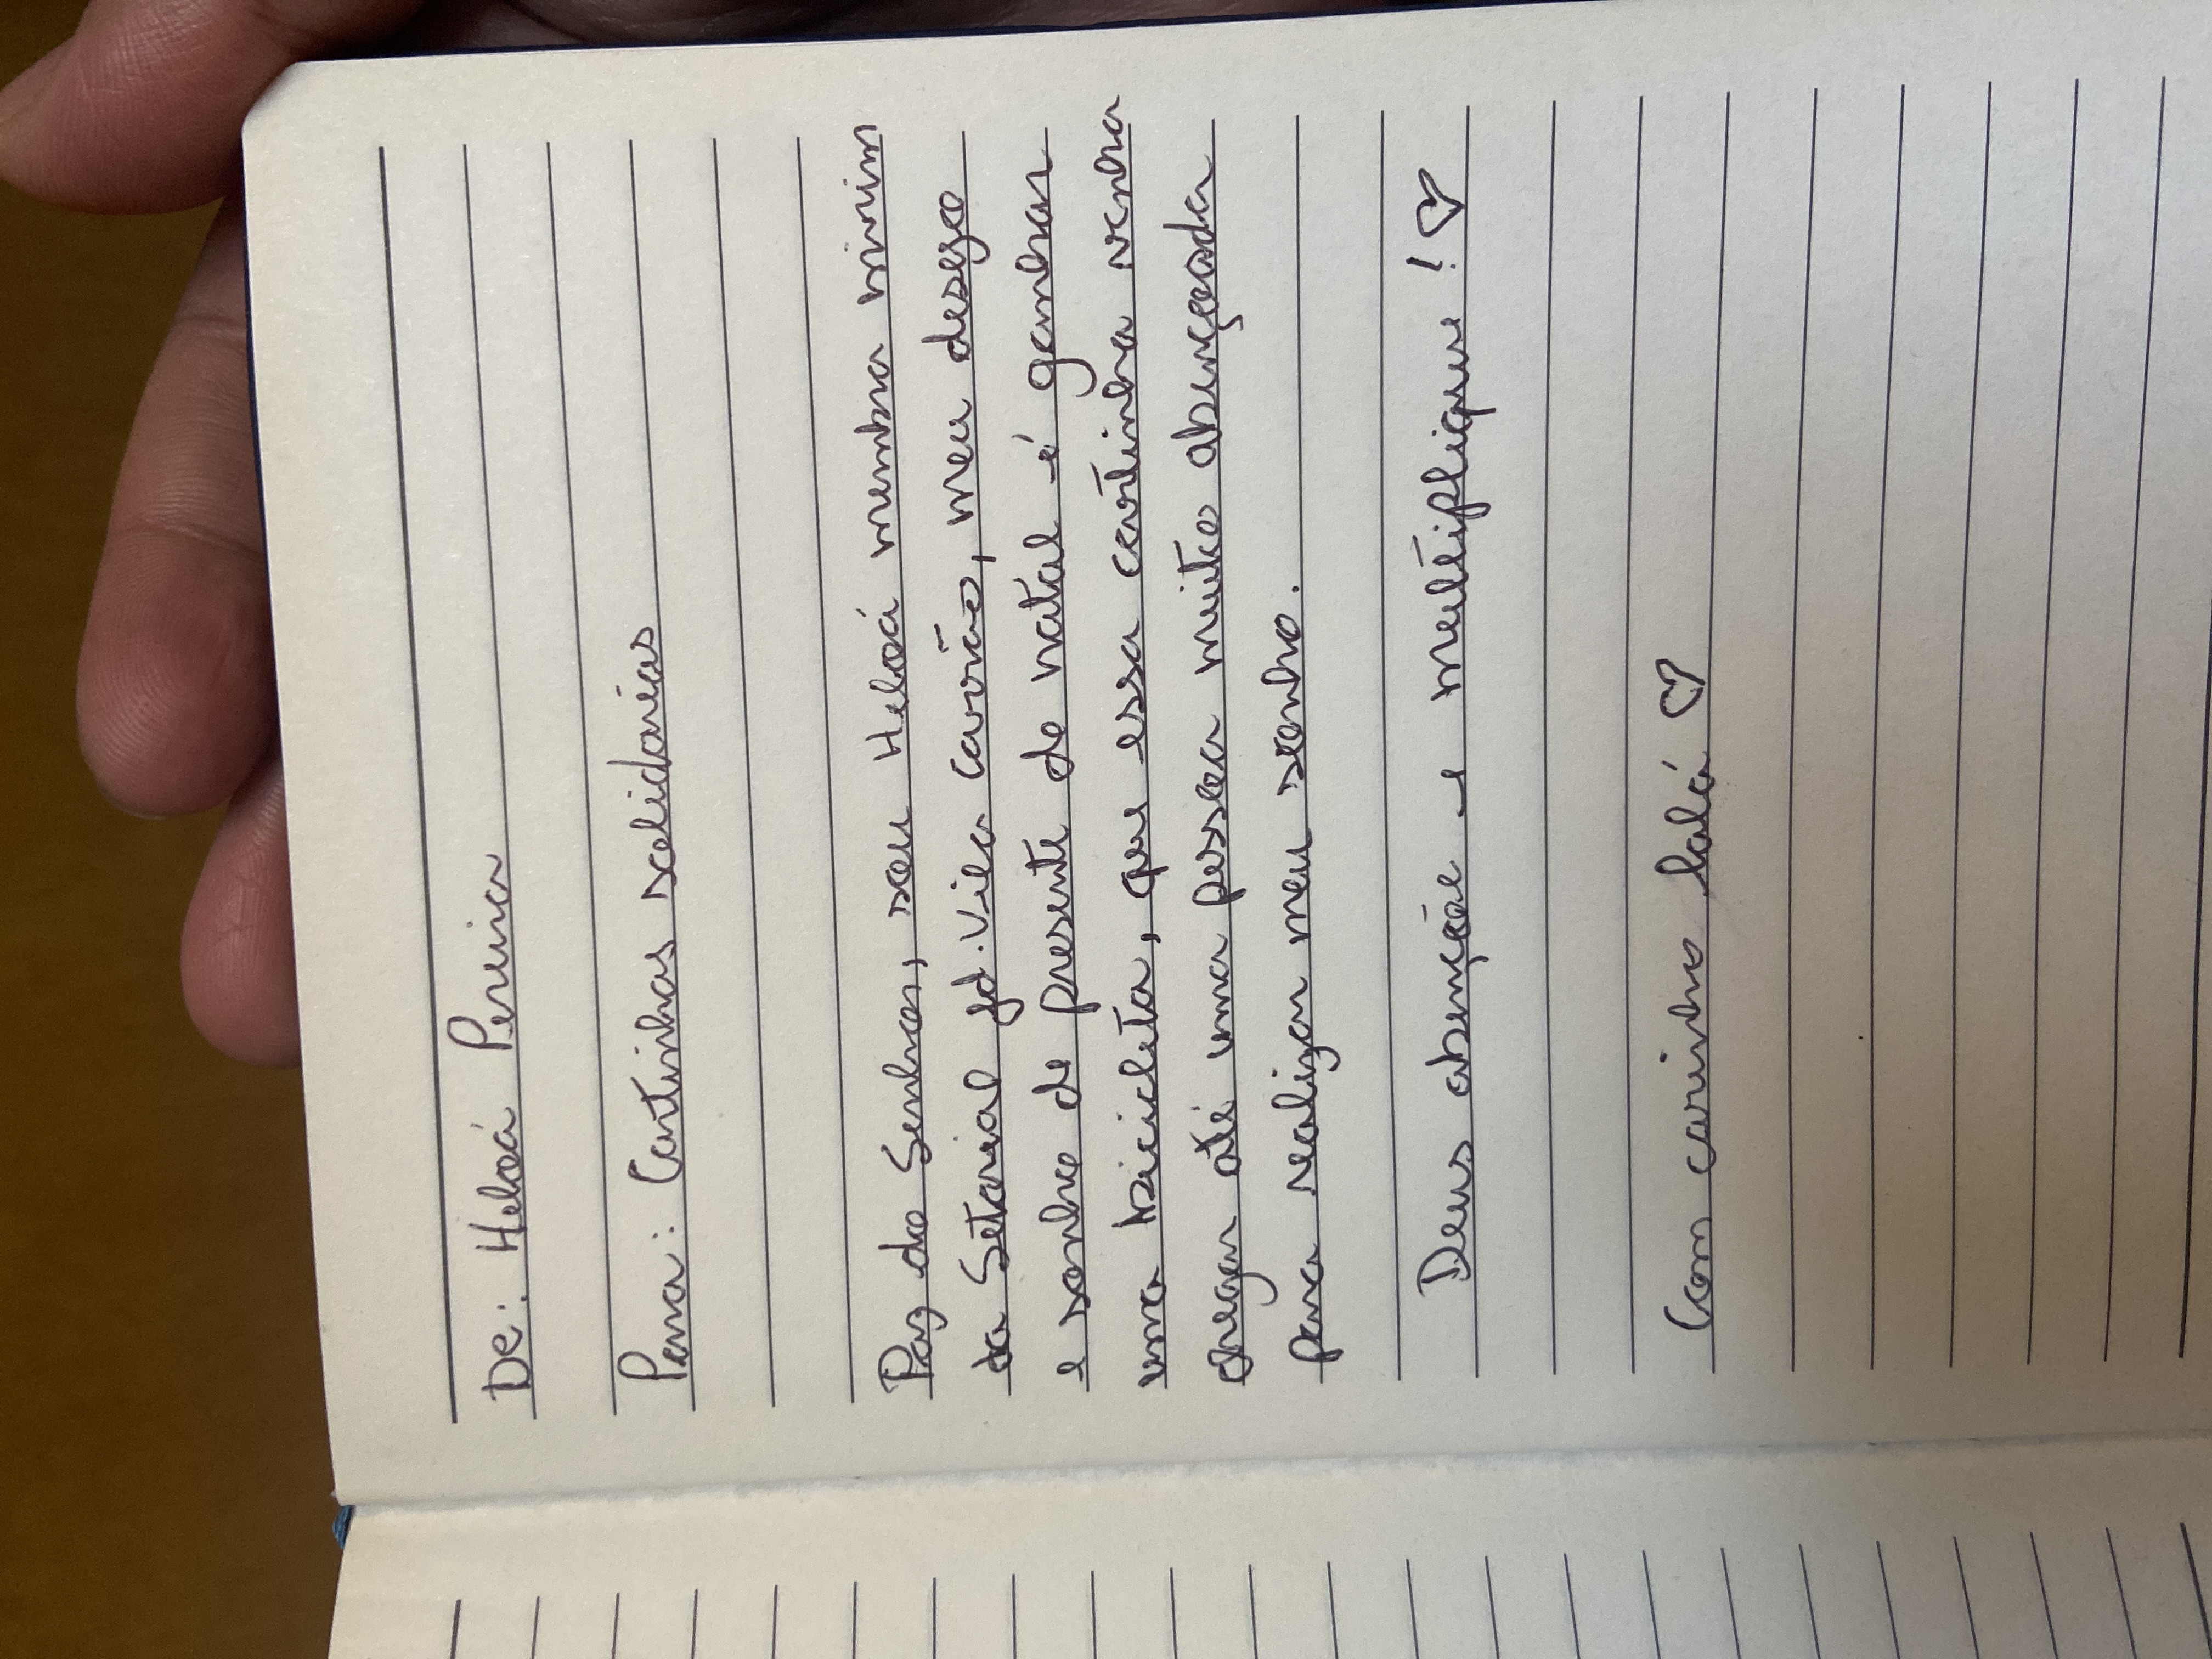 De: Heloá Pereira
Para: Cartinhas solidárias
Paz do Senhor, sou Heloá membra mirim
da Setorial jd. Vila Carrão, meu desejo
e sonho de presente de natal é ganhar
uma bicicleta, que essa cartinha venha
chegar até uma pessoa muito abençoada
para realizar meu sonho.
Deus abençõe e multiplique! ♡
Com carinho Loló ♡